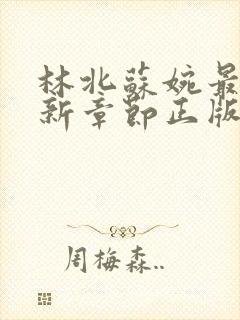 林北蘇婉最
新章節正版
周梅森..